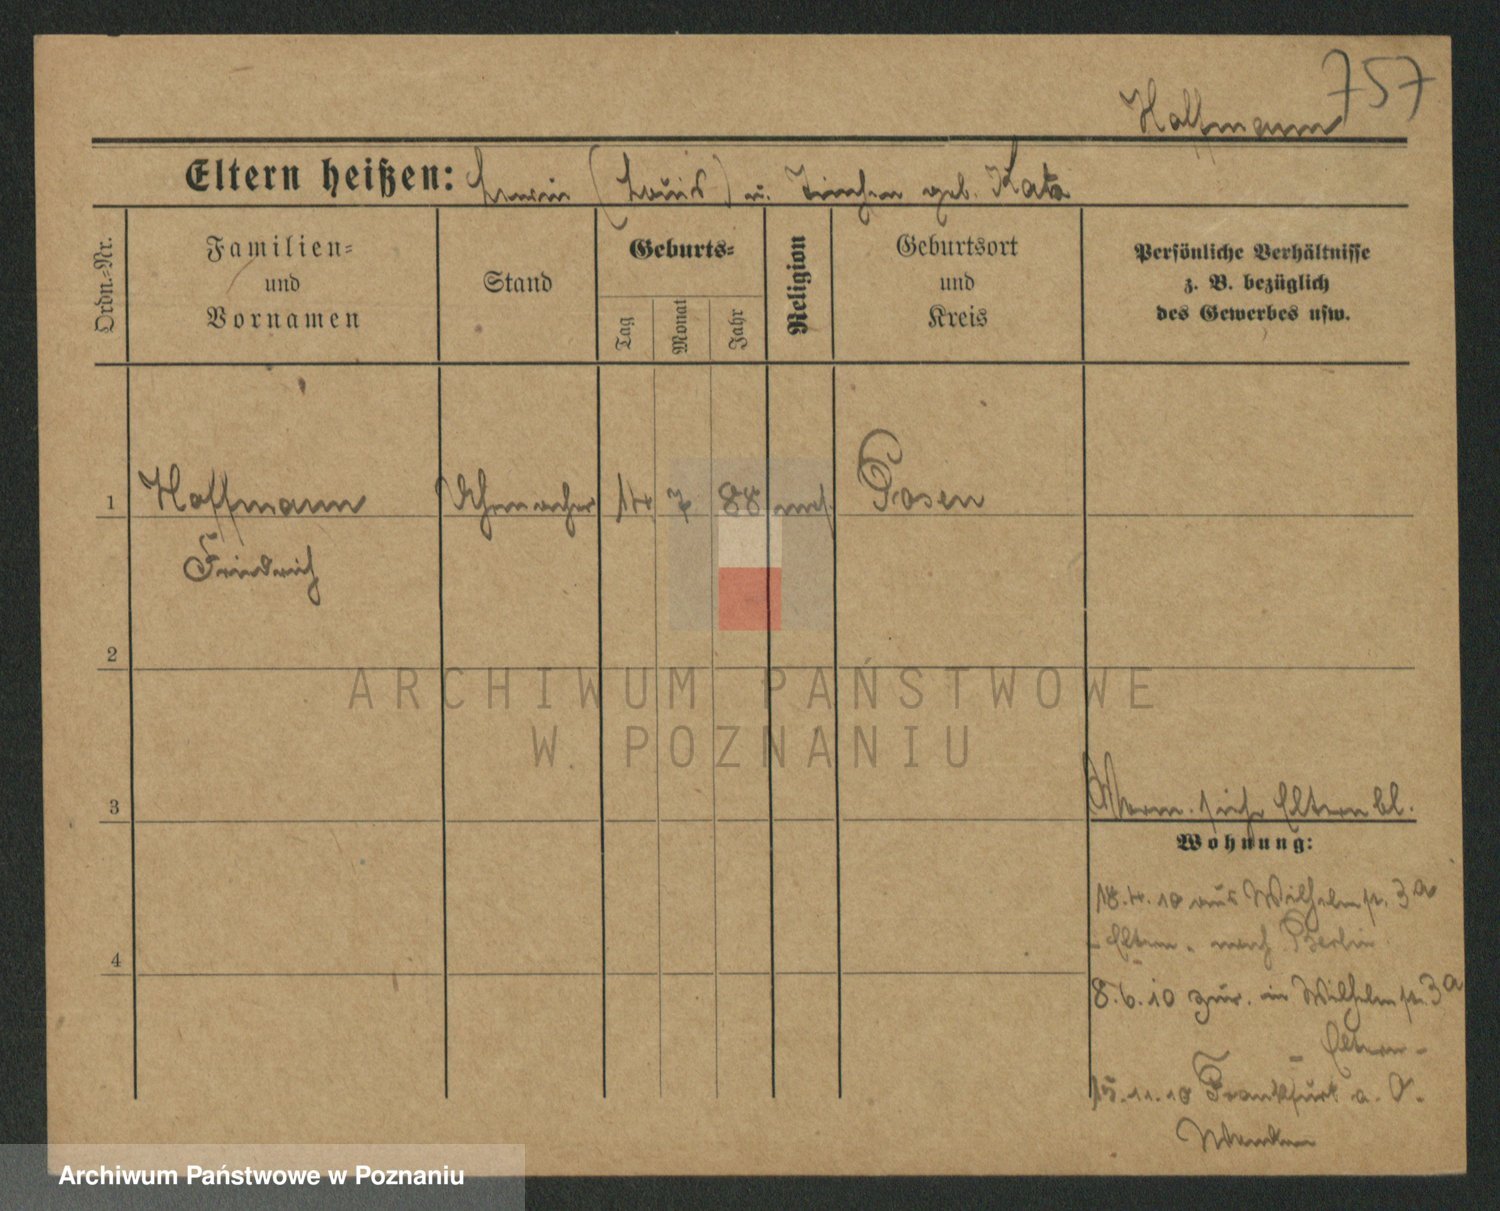 757
Hoffmann
Eltern heißen: (Louis) u. geb. Katz
Ordn.-Nr.
Familien-
und
Vornamen
Stand
Geburts-
Tag
Monat
Jahr
Religion
Geburtsort
und
Kreis
Persönliche Verhältnisse
z. B. bezüglich
des Gewerbes usw.
1 Hoffmann Uhrmacher 14 7 88 mos. Posen
Friedrich
2
ARCHIWUM PAŃSTWOWE
W POZNANIU
3
siehe Elternbl.
Wohnung:
18.4.10 aus Wilhelmstr. 3a
- Eltern - nach Berlin
4
8.6.10 zur. in Wilhelmstr. 3a
- Eltern -
15.11.10 Frankfurt a. O.
Archiwum Państwowe w Poznaniu